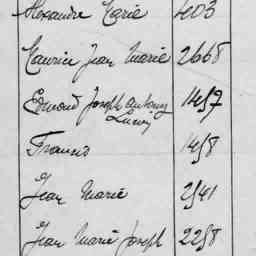 Alexandre Marie 403
Maurice Jean Marie 2668
Edmond Joseph Antony 1457
Lucien
Francis 1458
Jean Marie 2541
Jean Marie Joseph 2258